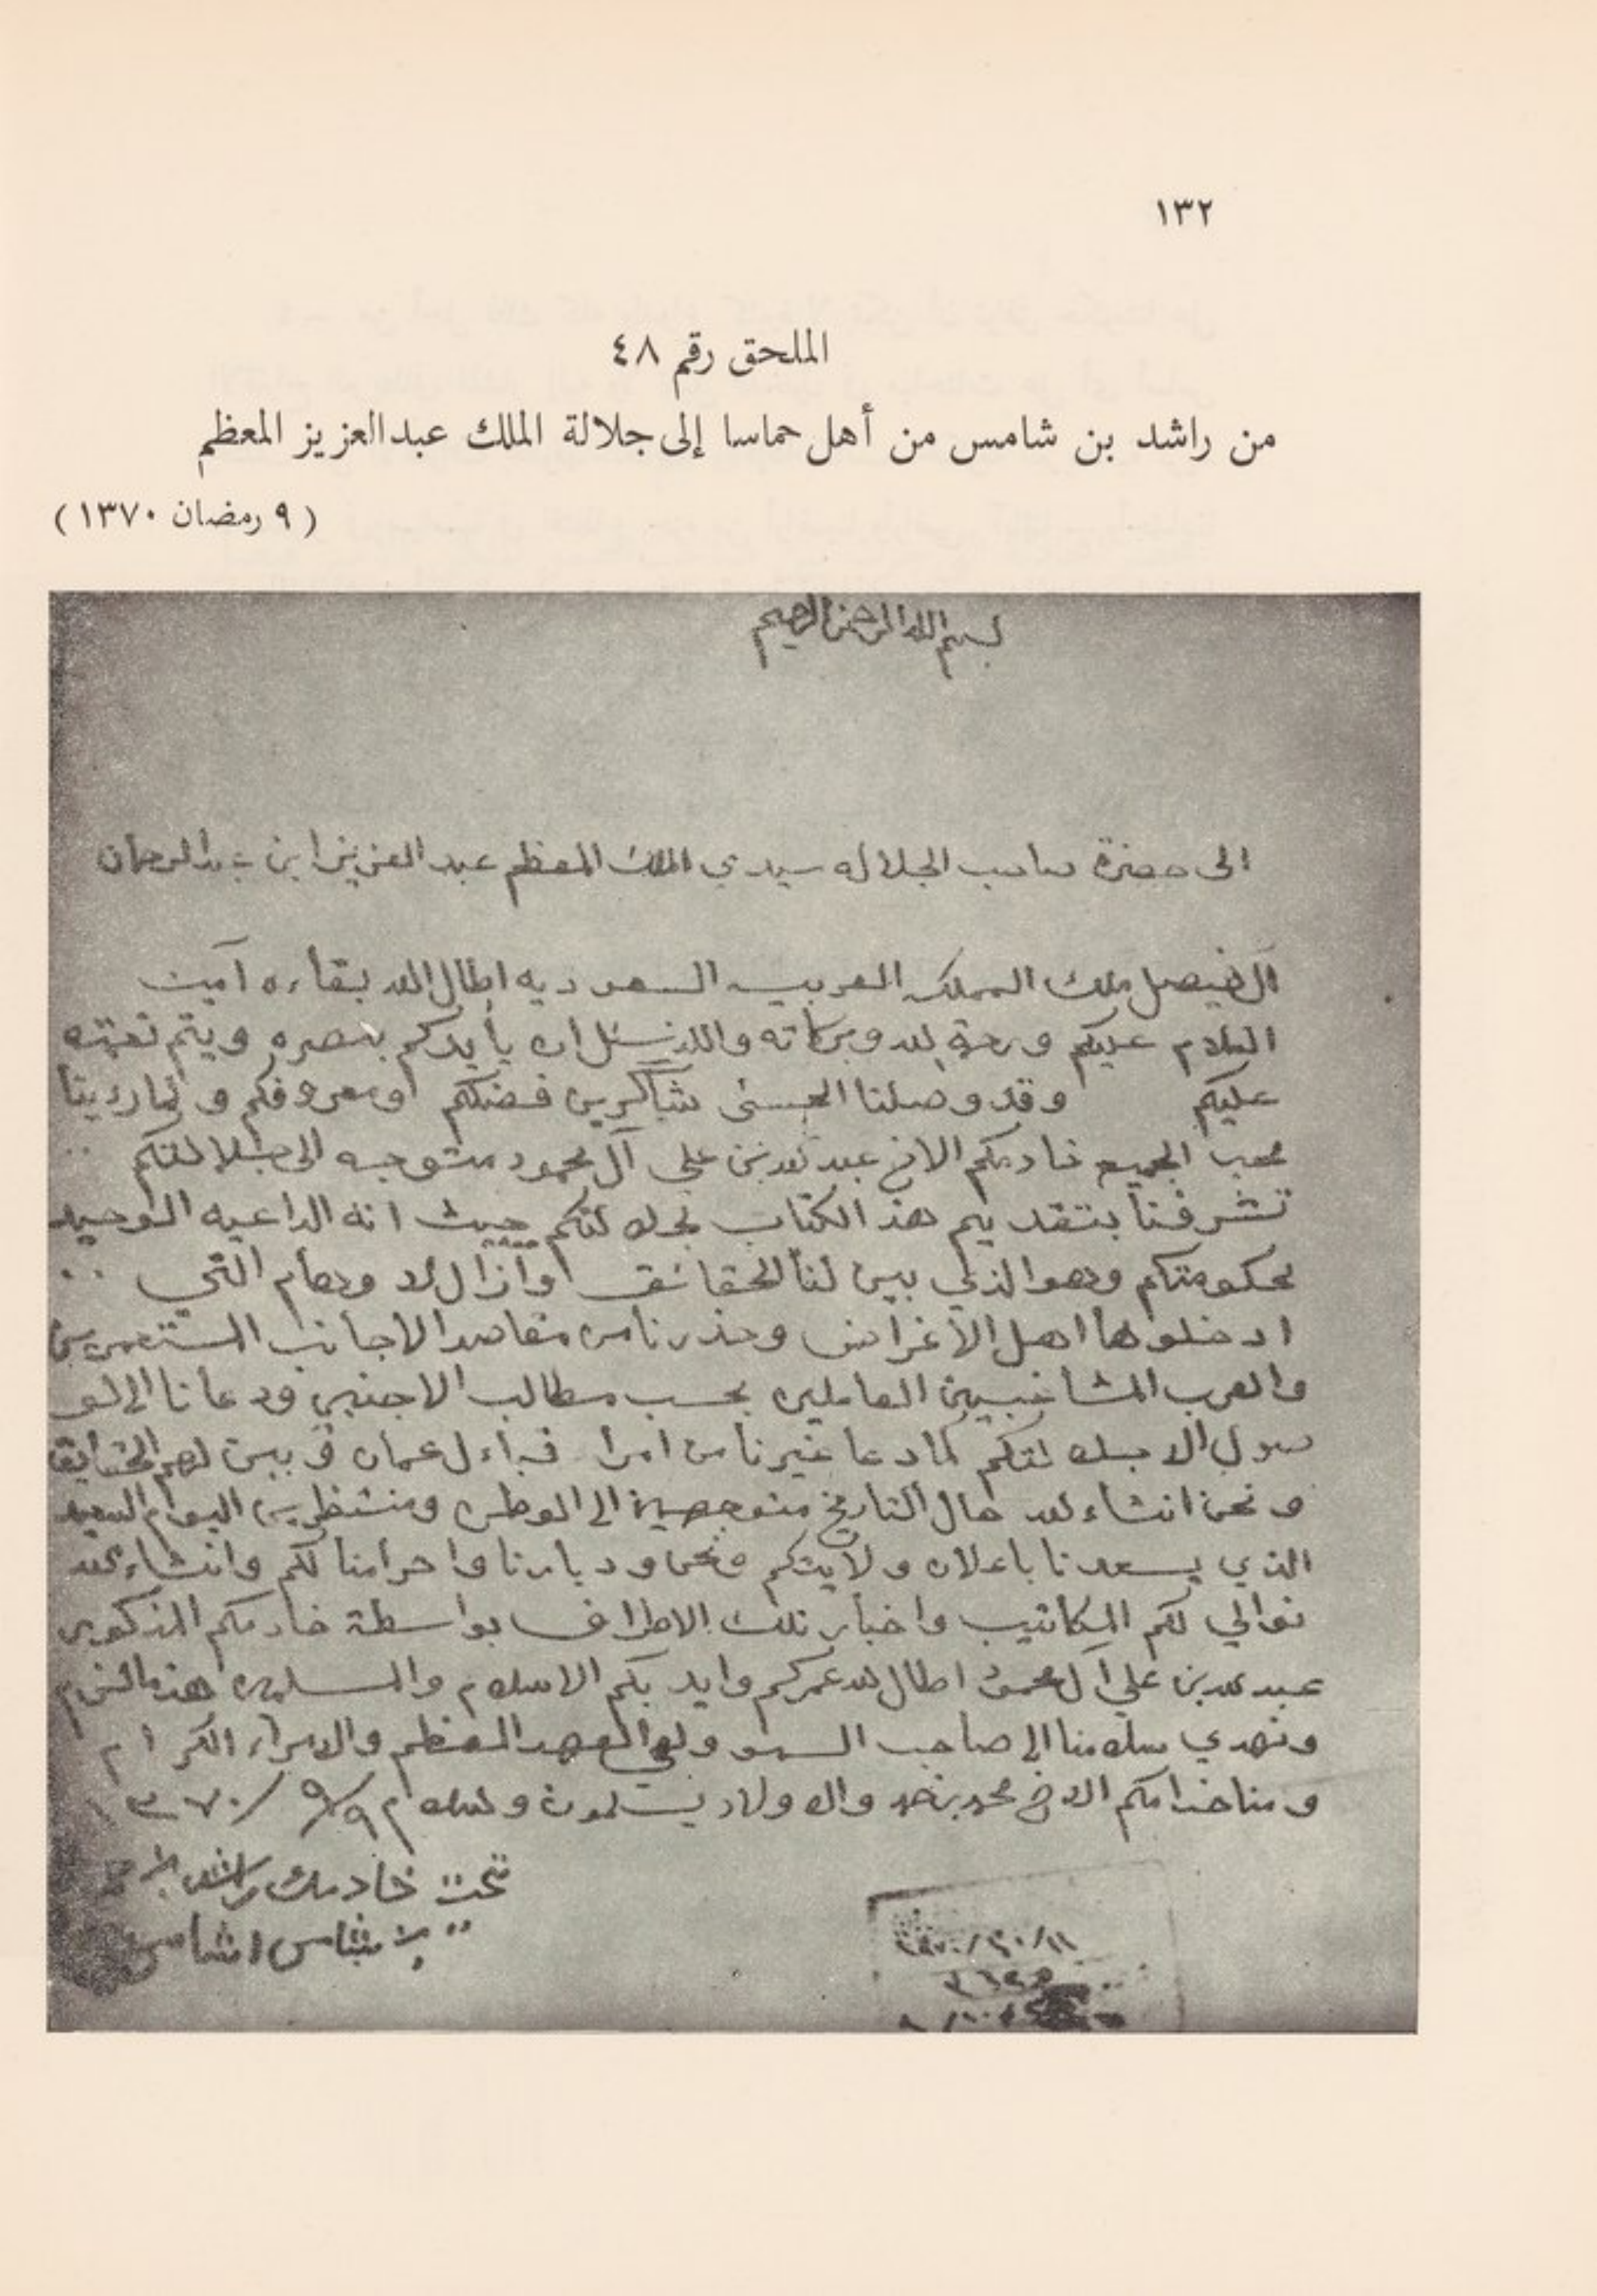 ١٣٢
الملحق رقم ٤٨
من راشد بن شامس من أهل حماسا إلى جلالة الملك عبدالعزيز المعظم
( ٩ رمضان ١٣٧٠ )
بسم الله الرحمن الرحيم
الى حضرة صاحب الجلاله سيدي الملك المعظم عبد العزيز ابن عبدالرحمان
آل فيصل ملك المملكه العربيه السعوديه اطال الله بقاءه آمين
السلام عليكم ورحمة الله وبركاته والله نسئل ان يأيدكم بنصره ويتم نعمته
عليكم وقد وصلنا الحسى شاكرين فضلكم ومعروفكم ولما رءينا
محب الجميع خادمكم الاخ عبد الله بن علي آل محمود متوجه الى جلالتكم
تشرفنا بتقديم هذ الكتاب لجلالتكم حيث انه الداعيه الوحيد
لحكومتكم وهو الذي بين لنا الحقائق وازال وهام التي
ادخلوها اهل الأغراض وحذرنا من مقاصد الاجانب المستعمرين
والعرب المشاغبين العاملين بحسب مطالب الاجنبي ودعانا الى
لجلالتكم كما دعا غيرنا من امرا قباءل عمان وبين لهم الحقايق
ونحن انشاء الله حال التاريخ متوجهين الى الوطن ومنتظرين اليوام السعيد
الذي يسعدنا باعلان ولايتكم ونحن وديارنا واحرامنا لكم وانشاء الله
نوالي لكم المكاتيب واخبار تلك الاطراف بواسطة خادمكم المذكور
عبد الله بن علي آل محمود اطال الله عمركم وايد بكم الاسلام والمسلمين هذا مالزم
ونهدي سلامنا الى صاحب السمو ولي العهد المعظم والامراء الكرام
ومنا خدامكم الاخ محمد بن حمد والاولاد يسلمون والسلام ٩/٩/٣٧٠
تحت خادمك راشد بن حمد
بن شامس الشامسي